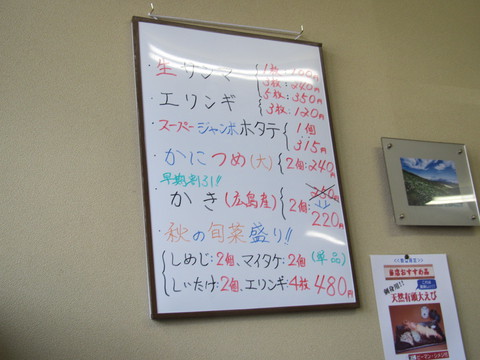 ・生サンマ { 1枚:100円
3枚:240円
5枚:350円
・エリンギ { 3枚:120円
・スーパージャンボホタテ { 1個
315円
・かにつめ(大) { 2個:240円
早期割引!!
・かき(広島産) { 2個: 250円
↓
220円
・秋の旬菜盛り!!
{ しめじ:2個、マイタケ:2個(単品)
しいたけ:2個、エリンギ:4枚 480円
当店おすすめ品
天然有頭大えび